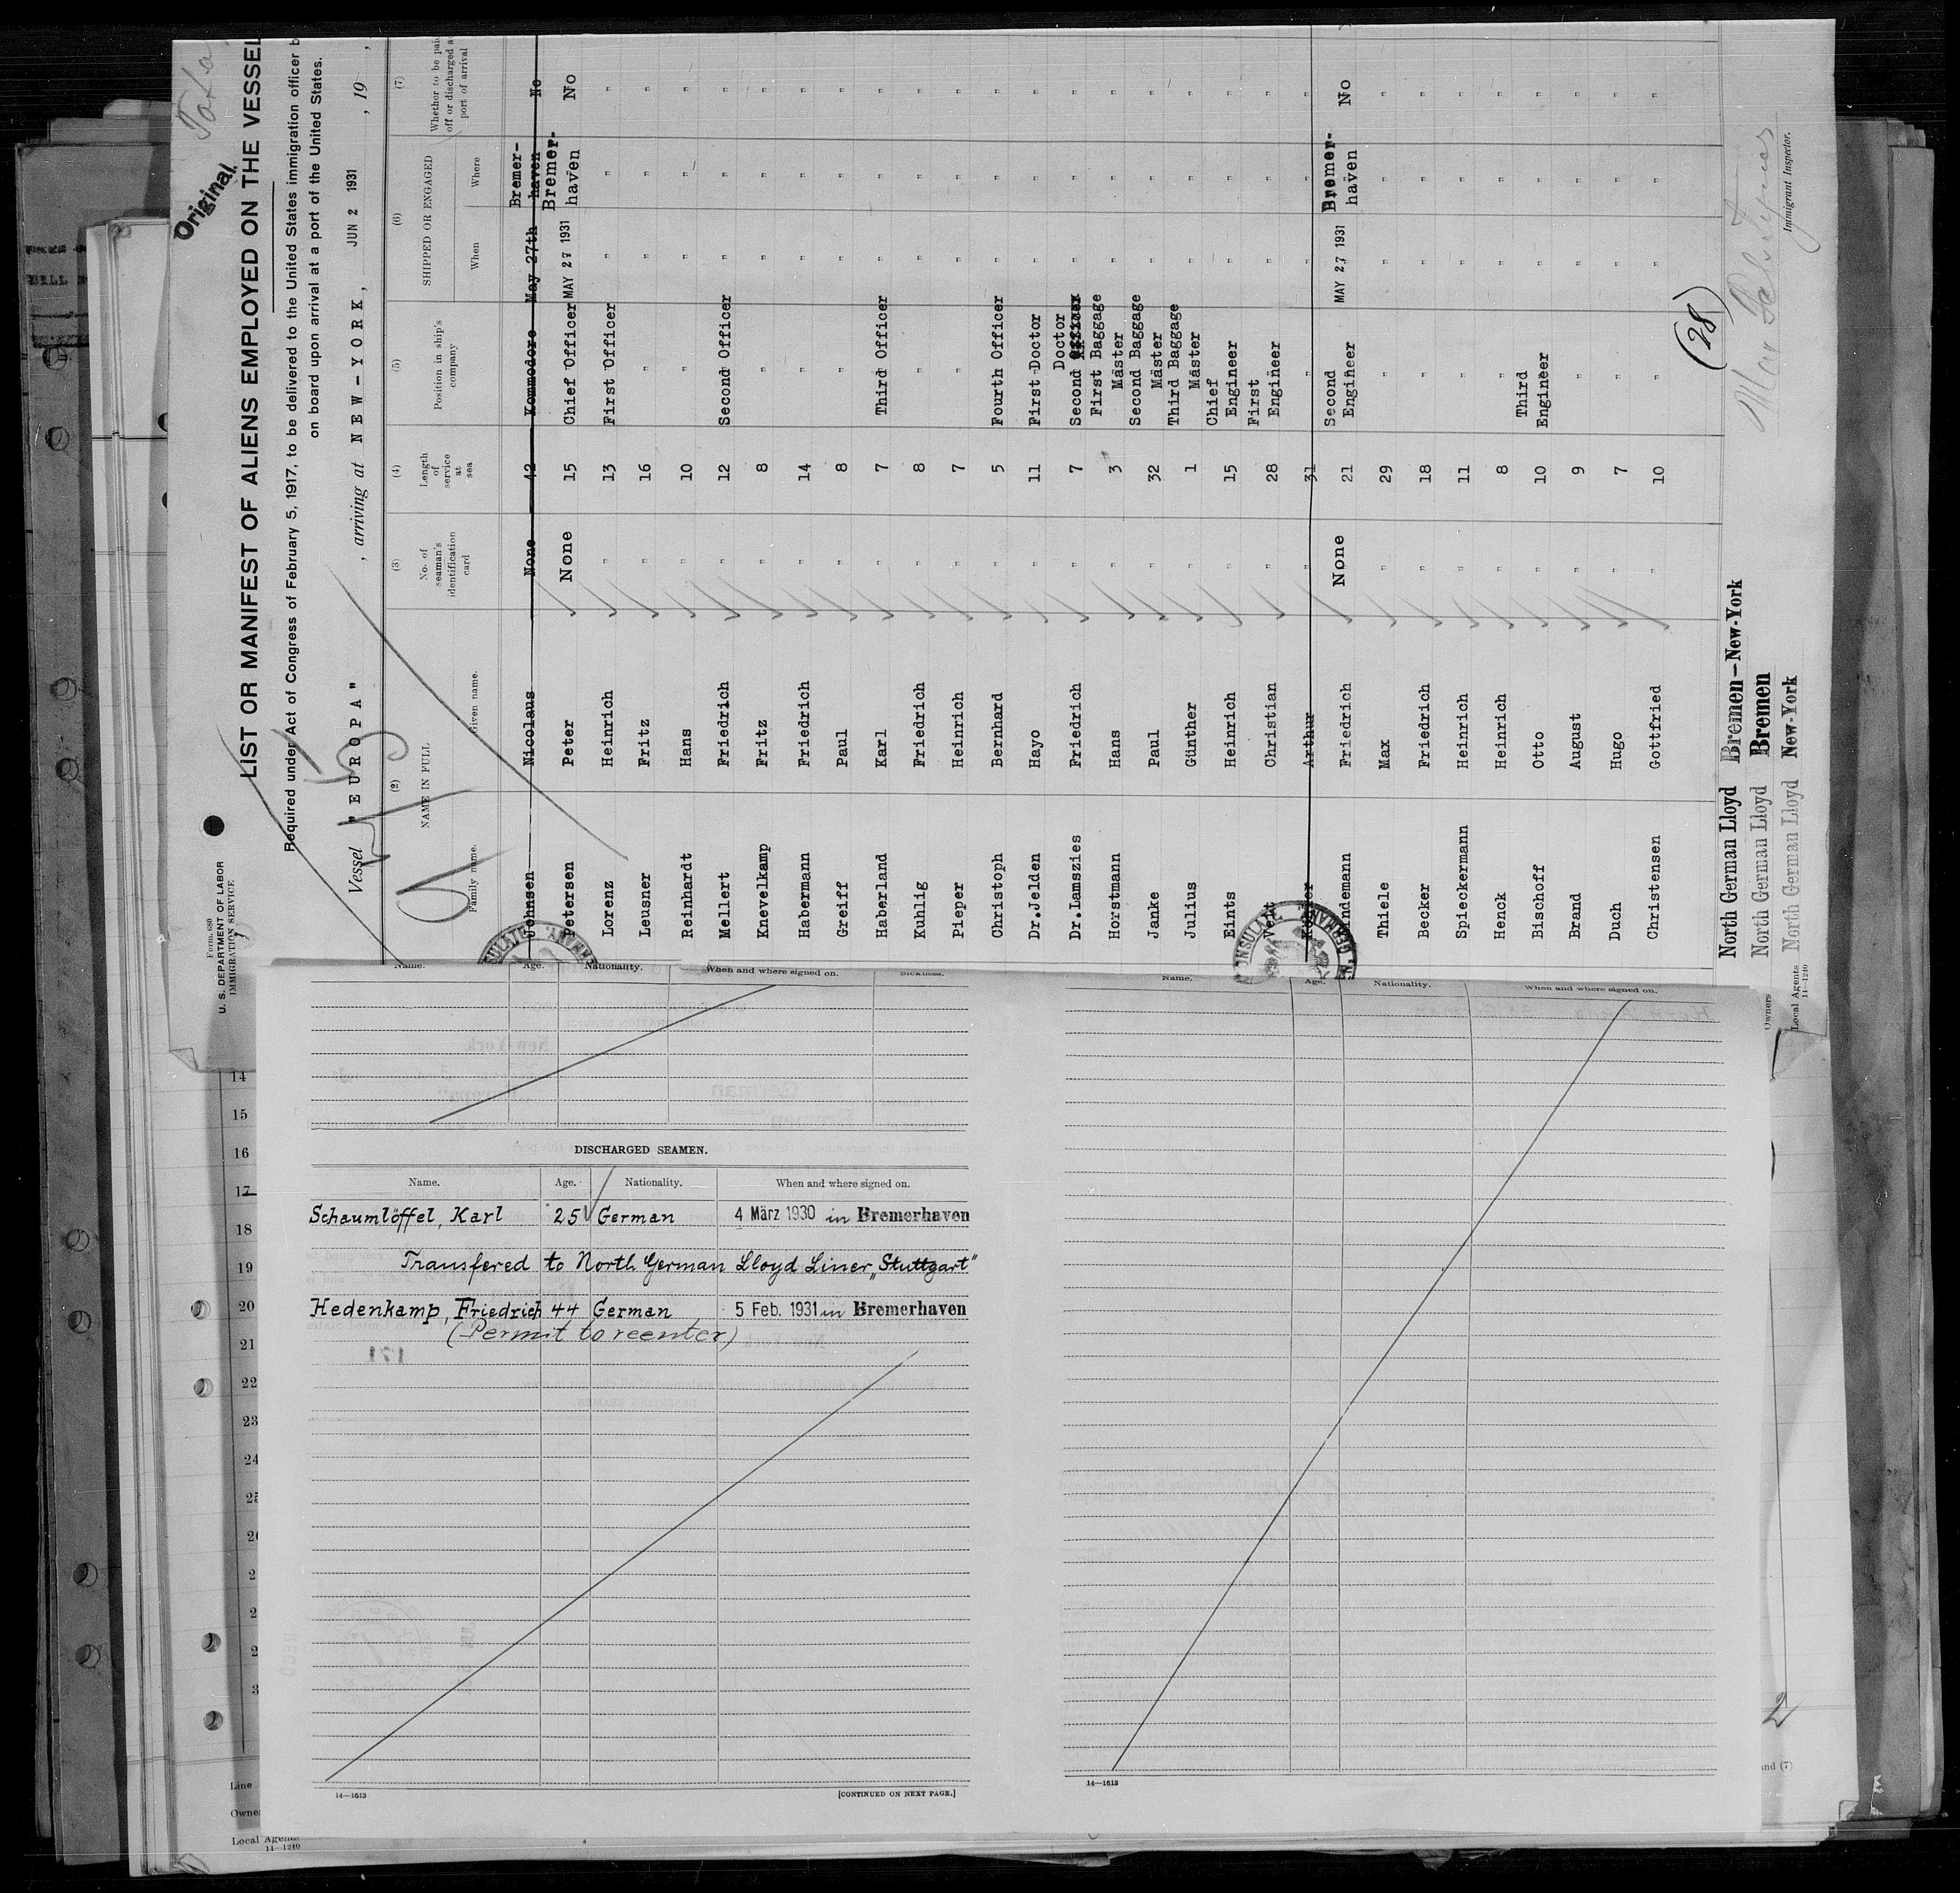 Original
Form 680
U. S. DEPARTMENT OF LABOR
IMMIGRATION SERVICE
LIST OR MANIFEST OF ALIENS EMPLOYED ON THE VESSEL
Required under Act of Congress of February 5, 1917, to be delivered to the United States immigration officer b
on board upon arrival at a port of the United States.
Vessel "EUROPA" , arriving at NEW-YORK, JUN 2 1931 , 19 ,
(2) (3) (4) (5) (6) (7)
NAME IN FULL No. of seaman's identification card Length of service at sea Position in ship's company SHIPPED OR ENGAGED Whether to be paid off or discharged a port of arrival
Family name. Given name. When Where
Johnsen Nicolaus None 42 Kommodore May 27th Bremer-haven No
Petersen Peter None 15 Chief Officer MAY 27 1931 Bremer-haven No
Lorenz Heinrich " 13 First Officer " " "
Leusner Fritz " 16 " " " "
Reinhardt Hans " 10 " " "
Mellert Friedrich " 12 Second Officer " " "
Knevelkamp Fritz " 8 " " " "
Habermann Friedrich " 14 " " " "
Greiff Paul " 8 " " " "
Haberland Karl " 7 Third Officer " " "
Kuhlig Friedrich " 8 " " " "
Pieper Heinrich " 7 " " " "
Christoph Bernhard " 5 Fourth Officer " " "
Dr.Jelden Hayo " 11 First Doctor " " "
Dr.Lamszies Friedrich " 7 Second Doctor " " "
Horstmann Hans " 3 First Baggage Master " " "
Janke Paul " 32 Second Baggage Master " " "
Julius Günther " 1 Third Baggage Master " " "
Eints Heinrich " 15 Chief Engineer " " "
Veit Christian " 28 First Engineer " " "
Arthur " 31 " " " "
Lindemann Friedrich None 21 Second Engineer MAY 27 1931 Bremer-haven No
Thiele Max " 29 " " " "
Becker Friedrich " 18 " " " "
Spieckermann Heinrich " 11 " " " "
Henck Heinrich " 8 " " " "
Bischoff Otto " 10 Third Engineer " " "
Brand August " 9 " " " "
Duch Hugo " 7 " " " "
Christensen Gottfried " 10 " " " "
(28)
North German Lloyd Bremen-New-York
Owners North German Lloyd Bremen
Local Agents North German Lloyd New-York
14-1240
Immigrant Inspector.
Name. Age. Nationality. When and where signed on. Sickness.
DISCHARGED SEAMEN.
Name. Age. Nationality. When and where signed on.
Schaumlöffel, Karl 25 German 4 März 1930 in Bremerhaven
Transfered to North German Lloyd Liner „Stuttgart"
Hedenkamp, Friedrich 44 German 5 Feb. 1931 in Bremerhaven
(Permit to reenter)
171
14—1613
[CONTINUED ON NEXT PAGE.]
Name. Age. Nationality. When and where signed on.
14—1613
14
15
16
17
18
19
20
21
22
23
24
Line
Owne
Local Agents
14—1240
2
and (7)